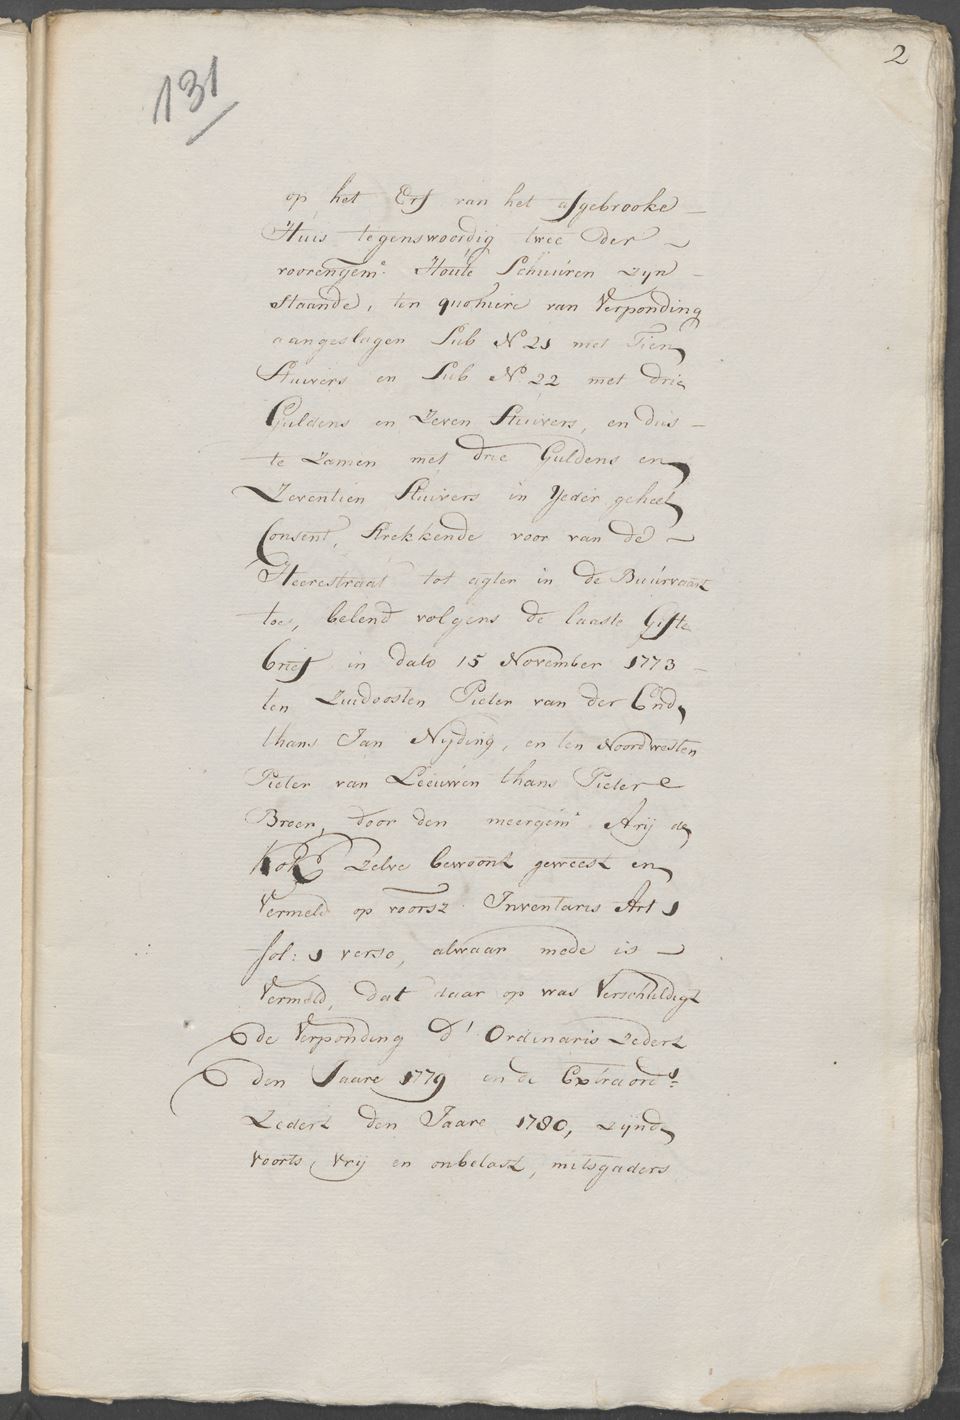 2
131
op het Erf van het afgebrooke
Huis tegenswoordig twee der
voorengem: Houte Schuúren zyn
staande, ten quohiere van Verponding
aangeslagen Sub No 21 met Tien
Stuivers en Sub No. 22 met drie
Guldens en Zeven Stuivers, en dus
te zamen met drie Guldens en
Zeventien Stuivers in Yeder geheel
Consent, Strekkende voor van de
Heerestraat tot agter in de Buúrvaart
toe, belend volgens de laaste Gifte
brief in dato 15 November 1773
ten Zuidoosten Pieter van der End,
thans Jan Nijding, en ten Noordwesten
Pieter van Leeuwen thans Pieter
Breen, door den meergem: Arij de
Kok Zelve bewoont geweest en
Vermeld op voorsz. Inventaris Art 1
fol: 1 verso, alwaar mede is
Vermeld, dat daar op was Verschuldigt
de Verponding d' Ordinaris Zedert
den Jaare 1779 en de Extraords:
Zedert den Jaare 1780, zynde
voorts vrij en onbelast, mitsgaders